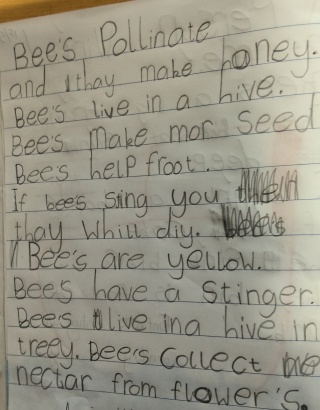 Bee's Pollinate
and thay make honey.
Bee's live in a hive.
Bee's make mor seed
Bee's help froot.
If bee's sing you
thay whill diy.
Bee's are yellow.
Bee's have a Stinger.
Bee's live in a hive in
treey. Bee's Collect
nectar from flower's.